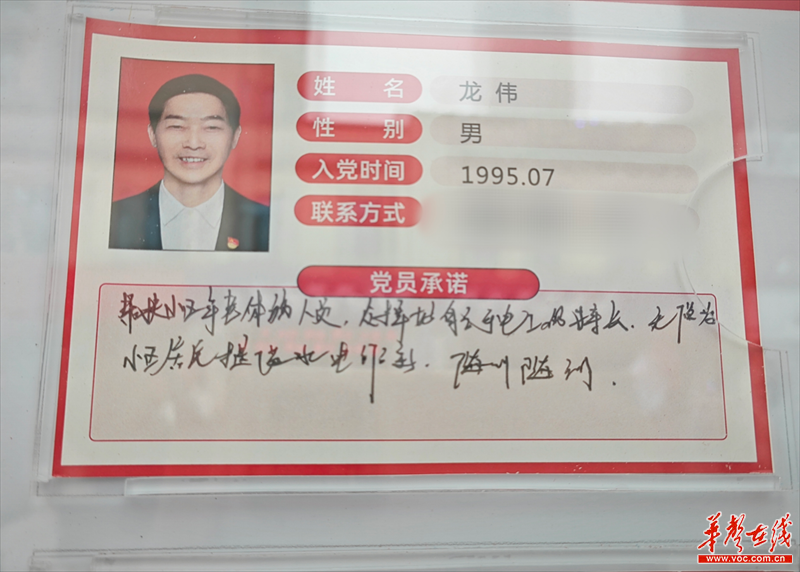 姓 名 龙 伟
性 别 男
入党时间 1995.07
联系方式
党员承诺
帮扶小区年老体弱人员，发挥自己电工的特长，无偿为
小区居民提供水电维修．随叫随到．
华声在线
www.voc.com.cn